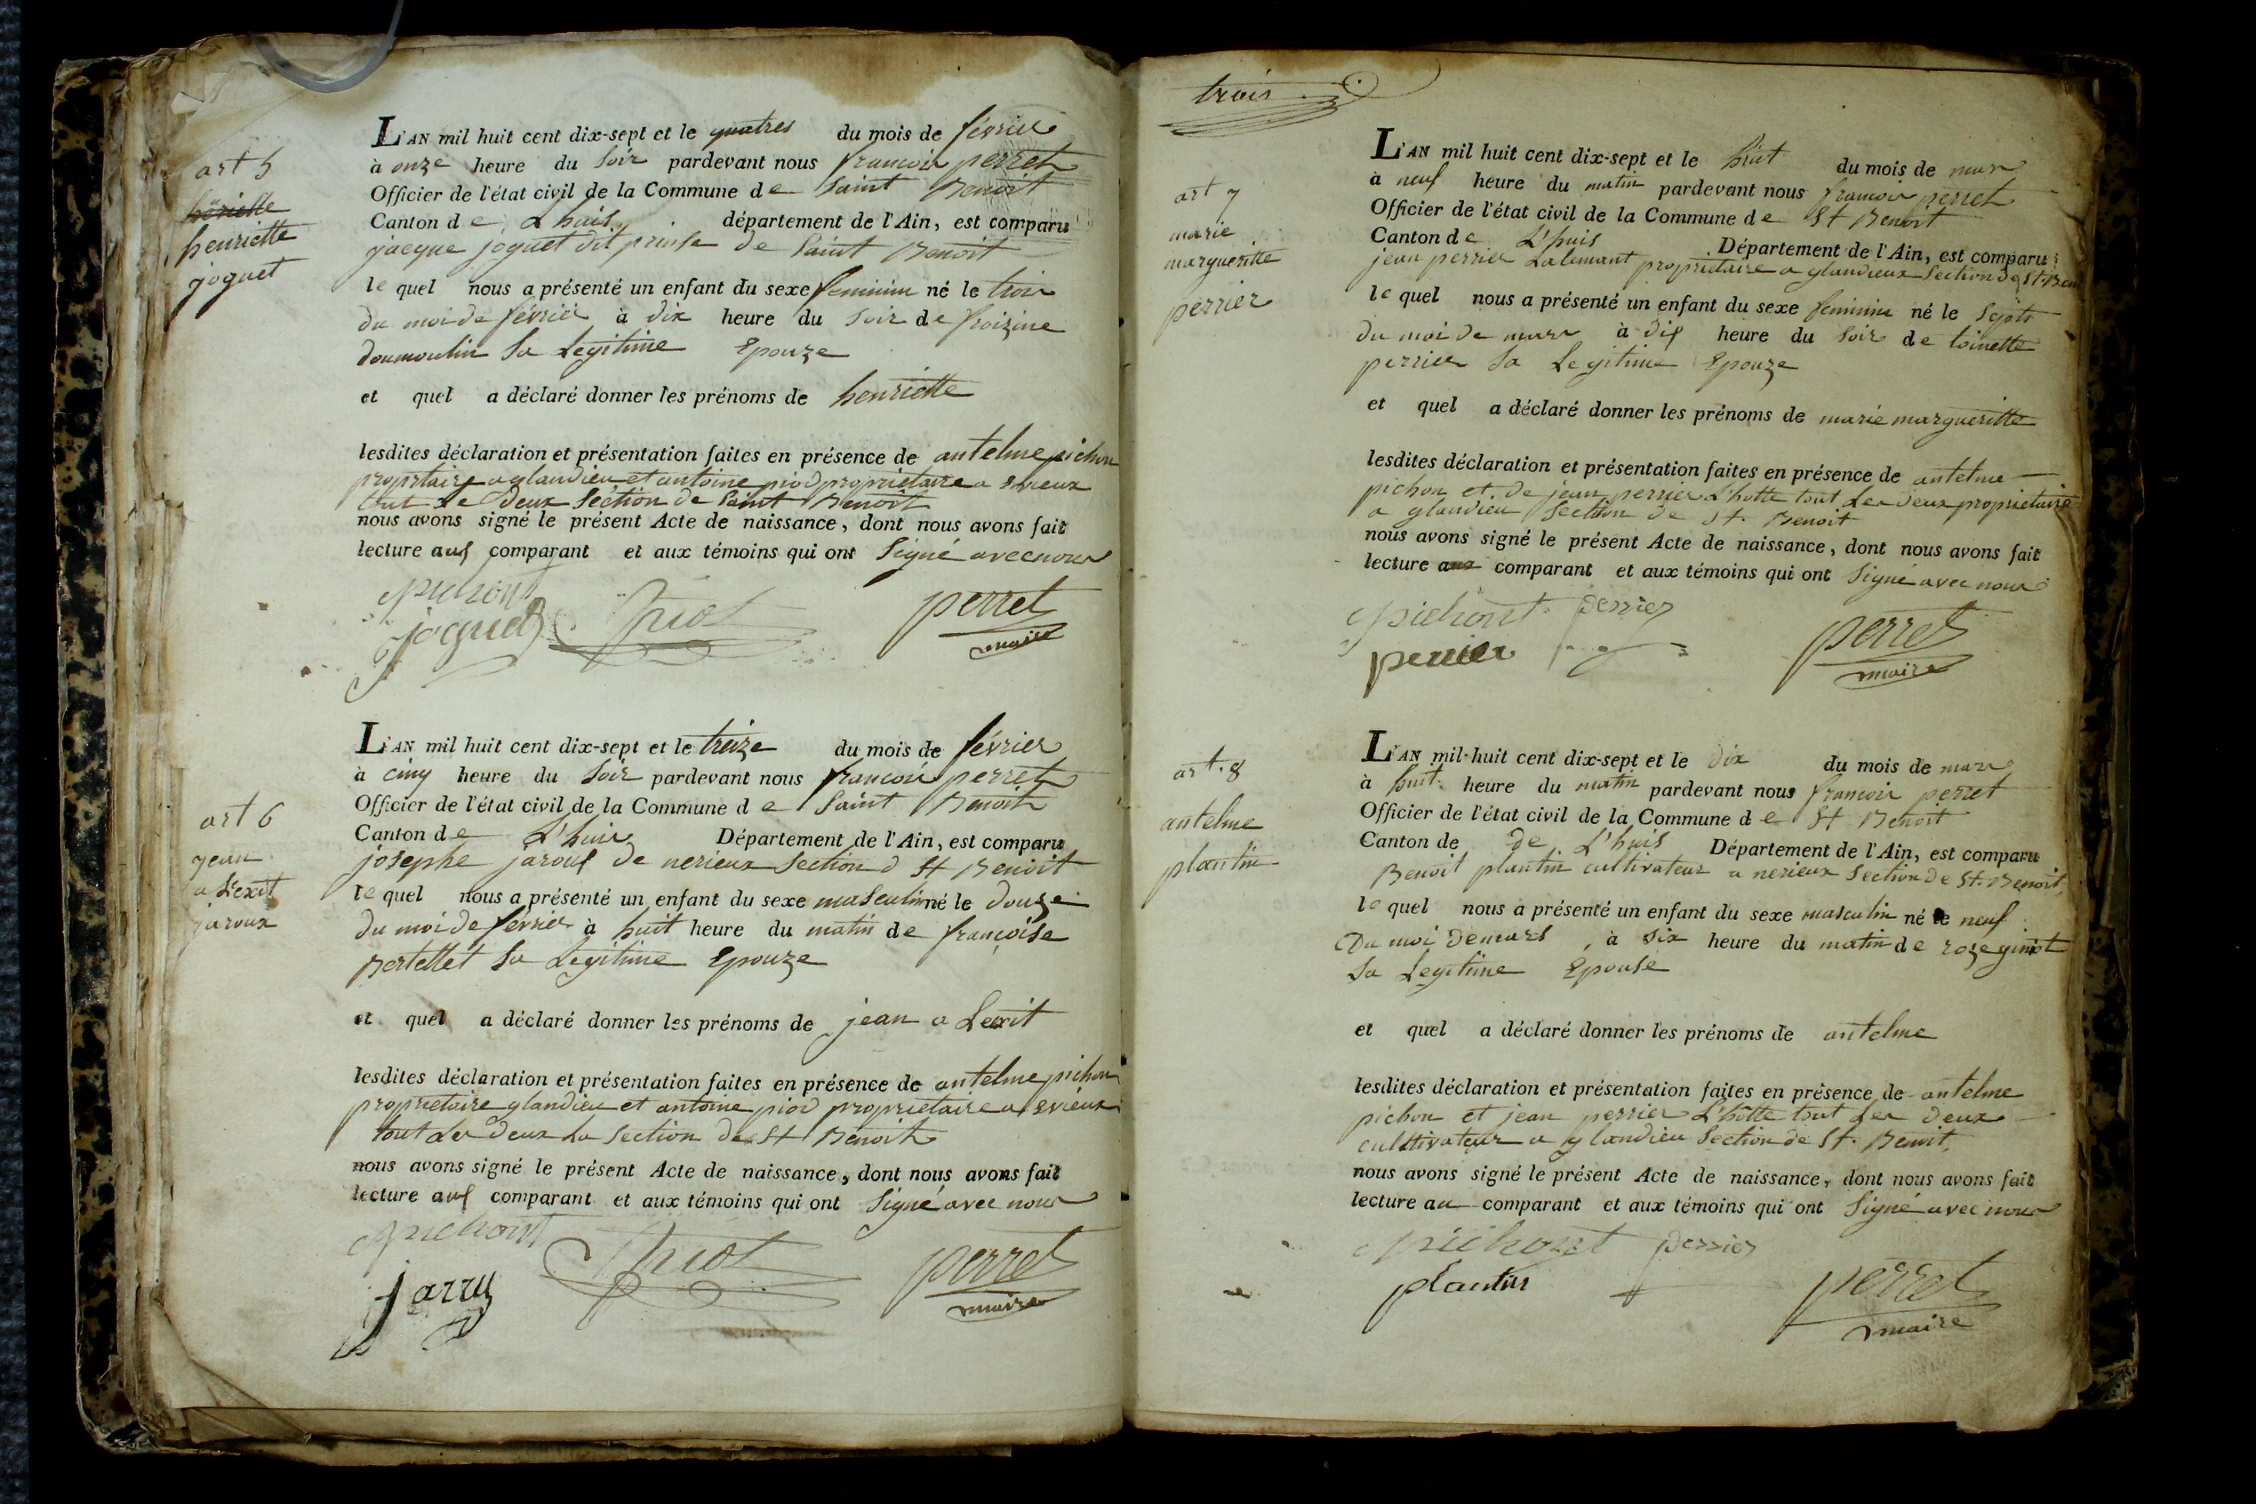 art 5
henriette
henriette
joguet
L'AN mil huit cent dix-sept et le quatres du mois de février
à onze heure du soir pardevant nous françois perret
Officier de l'état civil de la Commune de Saint Benoit
Canton de Lhuis département de l'Ain, est comparu
jacque joguet dit prinse de Saint Benoit
le quel nous a présenté un enfant du sexe feminim né le trois
du moi de février à dix heure du soir de froizine
doumoulin Sa Legitime Epouze
et quel a déclaré donner les prénoms de henriette
lesdites déclaration et présentation faites en présence de antelme pichon
propritaire a glandieu et antoine piod propriétaire a evieux
tout Le deux Séction de Saint Benoit
nous avons signé le présent Acte de naissance, dont nous avons fait
lecture aux comparant et aux témoins qui ont Signé avec nous
pichont
joguet piot perret
maire
art 6
jean
a Lexit
jaroux
L'AN mil huit cent dix-sept et le treize du mois de février
à cinq heure du Soir pardevant nous françois perret
Officier de l'état civil de la Commune de Saint Benoit
Canton de L'huis Département de l'Ain, est comparu
josephe jaroux de nerieux Section d St Benoit
le quel nous a présenté un enfant du sexe masculin né le douze
du moi de février à huit heure du matin de françoise
Bertettet Sa Legitime Epouze
et quel a déclaré donner les prénoms de jean a Lexit
lesdites déclaration et présentation faites en présence de antelme pichon
proprietaire glandieu et antoine piod proprietaire a evieux
tout Les deux La Section de St Benoit
nous avons signé le présent Acte de naissance, dont nous avons fait
lecture aux comparant et aux témoins qui ont Signé avec nous
pichont
jarru piot perret
maire
trois
art 7
marie
margueritte
perrier
L'AN mil huit cent dix-sept et le huit du mois de mars
à neuf heure du matin pardevant nous françois perret
Officier de l'état civil de la Commune de St Benoit
Canton de L'huis Département de l'Ain, est comparu
jean perrier Lalemant propriétaire a glandieux Section de St Ben
le quel nous a présenté un enfant du sexe feminin né le
du moi de mars à dix heure du soir de toinette
perrier Sa Legitime Epouze
et quel a déclaré donner les prénoms de marie margueritte
lesdites déclaration et présentation faites en présence de antelme
pichon et de jean perrier L'hotte tout Les deux proprietaire
a glandieu Section de St. Benoit
nous avons signé le présent Acte de naissance, dont nous avons fait
lecture aux comparant et aux témoins qui ont Signé avec nous
pichont perrier
perrier perret
maire
art. 8
antelme
plantin
L'AN mil huit cent dix-sept et le dix du mois de mars
à huit heure du matin pardevant nous françois perret
Officier de l'état civil de la Commune de St Benoit
Canton de de L'huis Département de l'Ain, est comparu
Benoit plantin cultivateur a nerieux Section de St. Benoit
le quel nous a présenté un enfant du sexe masculin né le neuf
Du moi de mars, à six heure du matin de roze ginet
Sa Legitime Epouse
et quel a déclaré donner les prénoms de antelme
lesdites déclaration et présentation faites en présence de antelme
pichon et jean perrier L'hotte tout Les deux
cultivateur a glandieu Section de St. Benoit
nous avons signé le présent Acte de naissance, dont nous avons fait
lecture au comparant et aux témoins qui ont Signé avec nous
pichont perrier
plantin perret
maire